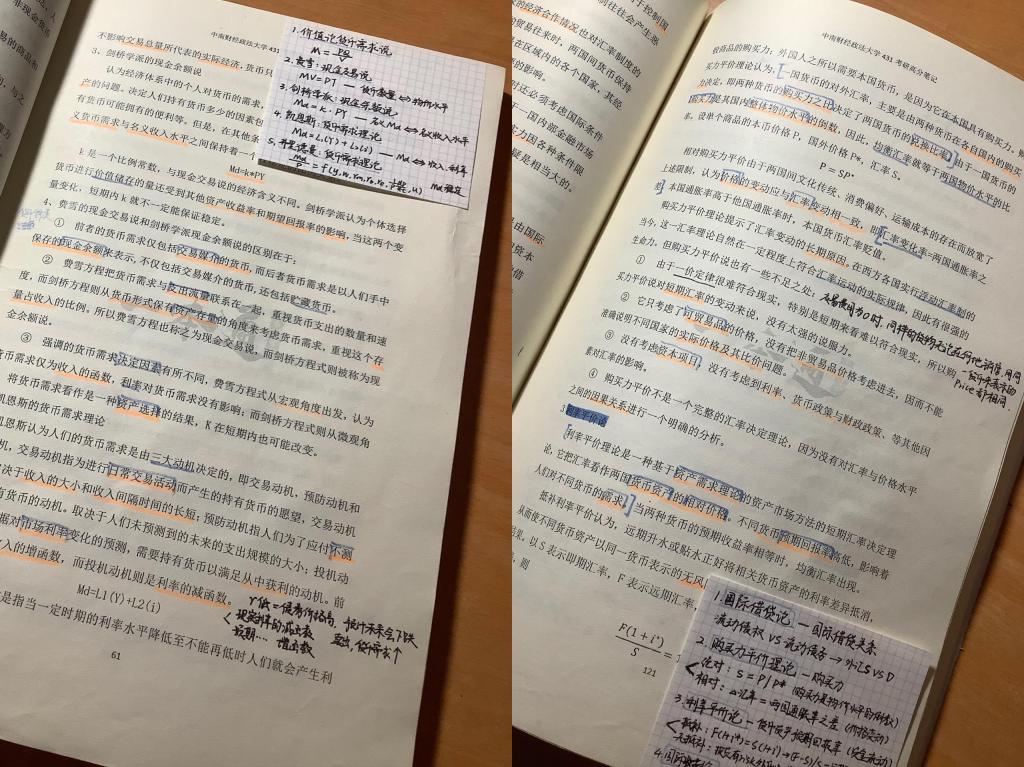 不影响交易总量所代表的实际经济，货币只
3、剑桥学派的现金余额说
认为经济体系中的个人对货币的需求，
产的问题。决定人们持有货币多少的因素包
有货币可能拥有的便利等。但是，在其他条
义货币需求与名义收入水平之间保持着一个
Md=k*PY
k 是一个比例常数，与现金交易说的经济含义不同。剑桥学派认为个体选择
货币进行价值储存的量还受到其他资产收益率和期望回报率的影响，当这两个变
量变化，短期内 k 就不一定能保证稳定。
4、费雪的现金交易说和剑桥学派现金余额说的区别在于：
① 前者的货币需求仅包括交易媒介的货币，而后者货币需求是以人们手中
保存的现金余额来表示，不仅包括交易媒介的货币，还包括贮藏货币。
② 费雪方程把货币需求与支出流量联系在一起，重视货币支出的数量和速
度，而剑桥方程则从货币形式保有资产存量的角度来考虑货币需求，重视这个存
量占收入的比例。所以费雪方程也称之为现金交易说，而剑桥方程式则被称为现
金余额说。
③ 强调的货币需求决定因素有所不同，费雪方程式从宏观角度出发，认为
货币需求仅为收入的函数，利率对货币需求没有影响；而剑桥方程式则从微观角
将货币需求看作是一种资产选择的结果，K 在短期内也可能改变。
凯恩斯的货币需求理论
凯恩斯认为人们的货币需求是由三大动机决定的，即交易动机，预防动机和
机，交易动机指为进行日常交易活动而产生的持有货币的愿望，交易动机
决于收入的大小和收入间隔时间的长短；预防动机指人们为了应付不测
有货币的动机。取决于人们未预测到的未来的支出规模的大小；投机动
据对市场利率变化的预测，需要持有货币以满足从中获利的动机。前
收入的增函数，而投机动机则是利率的减函数。
Md=L1(Y)+L2(i)
是指当一定时期的利率水平降低至不能再低时人们就会产生利
61
中南财经政法大学 431
1.价值论货币需求说
M=PQ/V
2.费雪：现金交易说
MV=PT — 货币数量⇔物价水平
3.剑桥学派：现金余额说
Md=k·PY — 名义Md⇔名义收入水平
4.凯恩斯：货币需求理论
Md=L1(Y)+L2(i) Md⇔收入、利率
5.弗里德曼：货币需求理论
Md稳定
r低=债券价格高，
现实利率的减函数
预期… 增函数
中南财经政法大学 431 考研高分笔记
般商品的购买力；外国人之所以需要本国货币，是因为它在本国具有购买力。购
买力平价理论认为，一国货币的对外汇率，主要是由两种货币在各自国内的购买
力决定，即两种货币的购买力之比决定了两国货币的兑换比率。由于一国货币的
购买力是其国内整体物价水平的倒数，因此，均衡汇率就等于两国物价水平的比
率。设单个商品的本币价格 P，国外价格 P*，汇率 S。
P = SP*
相对购买力平价由于两国间文化传统、消费偏好、运输成本的存在而放宽了
上述限制，认为价格的变动应与汇率变动相一致，即汇率变化率=两国通胀率之
差。本国通胀率高于他国通胀率时，本国货币汇率贬值。
购买力平价理论提示了汇率变动的长期原因，在西方各国实行浮动汇率制的
当今，这一汇率理论自然在一定程度上符合汇率运动的实际规律，因此有很强的
主命力。但购买力平价说也有一些不足之处：
① 由于一价定律很难符合现实，特别是短期来看难以符合现实，所以购
买力平价说对短期汇率的变动来说，没有太强的说服力。
② 它只考虑了可贸易品的价格，没有把非贸易品价格考虑进去，因而不能
准确说明不同国家的实际价格及其比价问题。
③ 没有考虑资本项目，没有考虑到利率、货币政策与财政政策、等其他因
素对汇率的影响。
④ 购买力平价不是一个完整的汇率决定理论，因为没有对汇率与价格水平
之间的因果关系进行一个明确的分析。
3利率平价论
利率平价理论是一种基于资产需求理论的资产市场方法的短期汇率决定理
论，它把汇率看作两国货币资产的相对价格，不同货币预期回报率高低，影响着
人们对不同货币的需求。当两种货币的预期收益率相等时，均衡汇率出现。
抵补利率平价认为，远期升水或贴水正好将相关货币资产的利率差异抵消，
从而使不同货币资产以同一货币表示的无风
以 S 表示即期汇率，F 表示远期汇率，
则
F(1+i*)/S =
121
交易费用为0时，同样的货物无论在何地销售，用同
一货币来表示的
Price都相同.
1.国际借贷论 — 国际借贷关系
流动债权 VS 流动债务 → 外汇S vs D
2.购买力平价理论 — 购买力
绝对：S=P/P* (购买力是物价水平的倒数)
相对：△汇率=两国通胀率之差 (价格变动)
3.利率平价论 — 货币资产预期回报率 (资金流动)
抵补：F(1+i*)=S(1+i)→(F-S)/S=